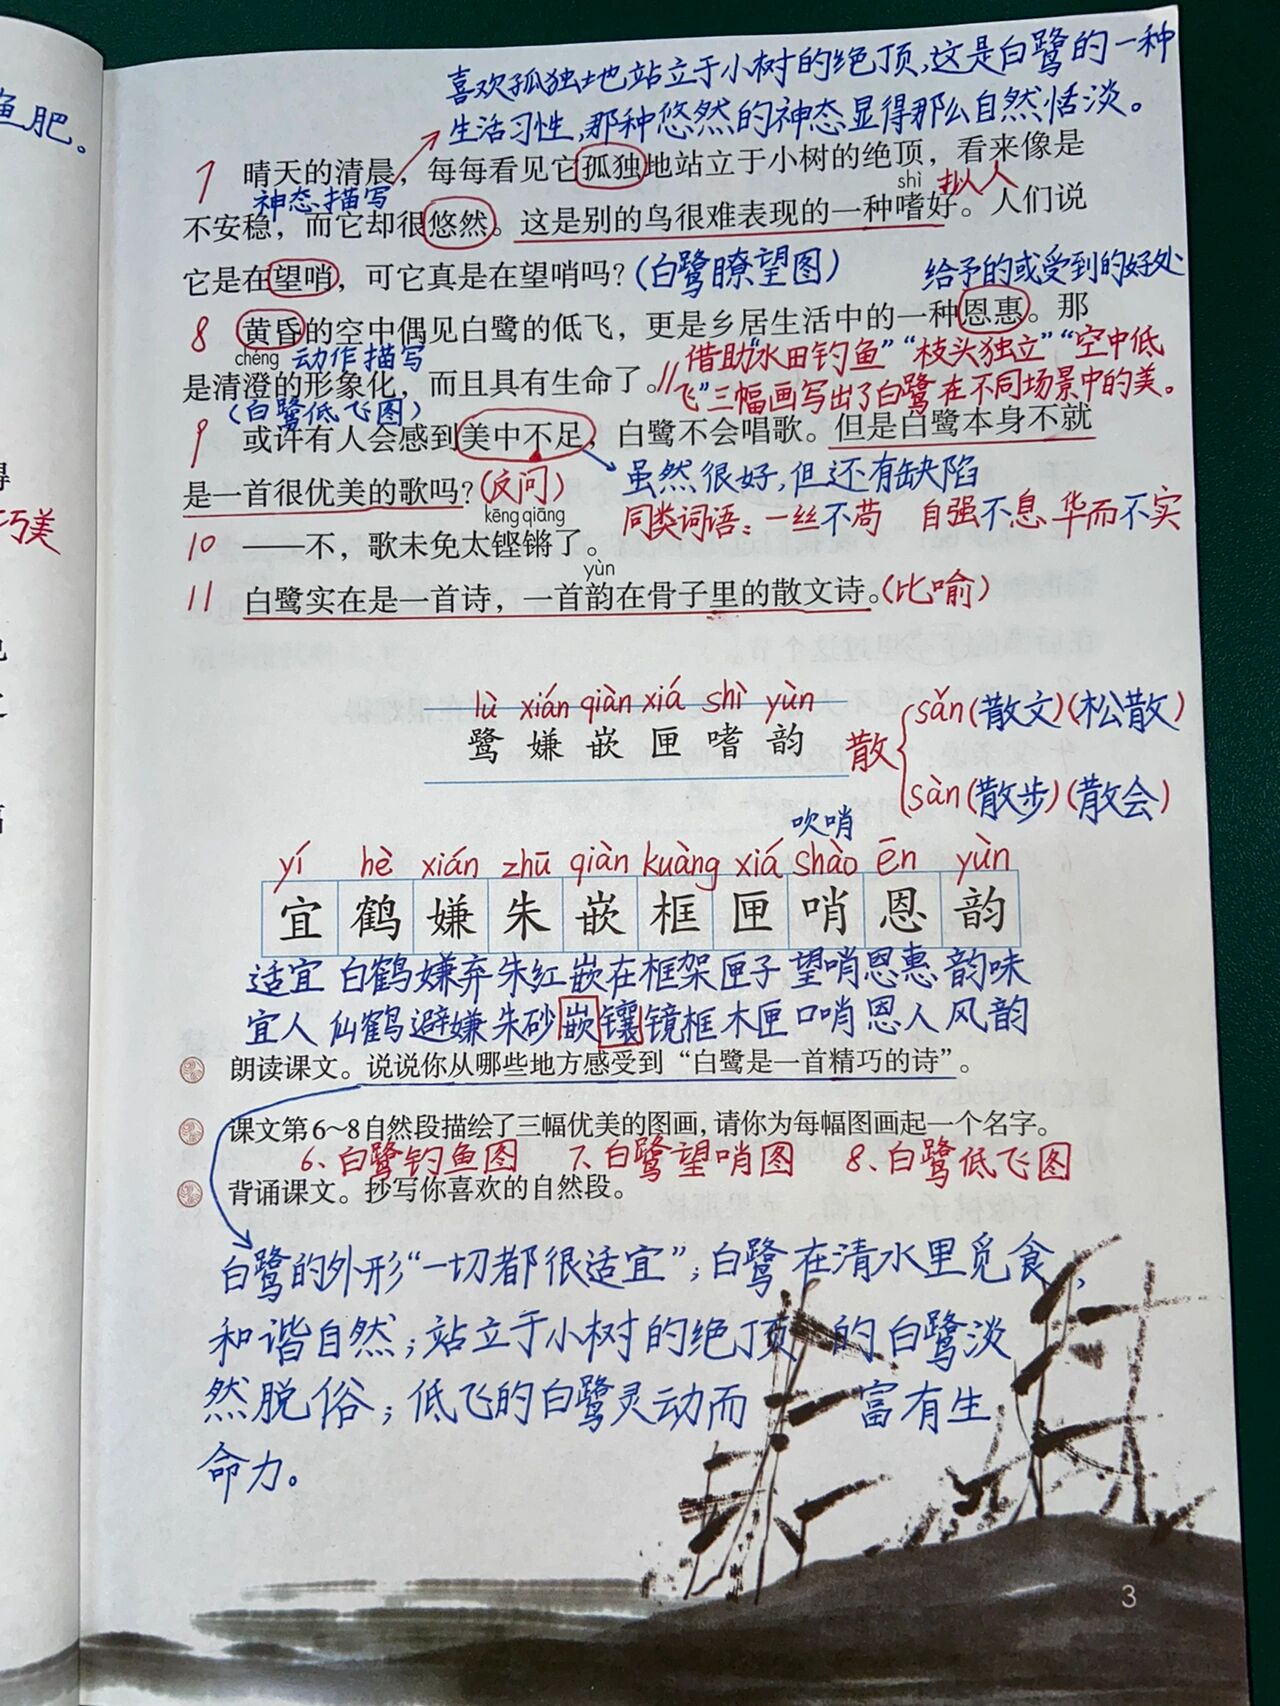 鱼肥。
喜欢孤独地站立于小树的绝顶,这是白鹭的一种
生活习性,那种悠然的神态显得那么自然恬淡。
7 晴天的清晨，每每看见它孤独地站立于小树的绝顶，看来像是
神态描写
shì 拟人
不安稳，而它却很悠然。这是别的鸟很难表现的一种嗜好。人们说
它是在望哨，可它真是在望哨吗？(白鹭瞭望图)
给予的或受到的好处
8 黄昏的空中偶见白鹭的低飞，更是乡居生活中的一种恩惠。那
chéng 动作描写
是清澄的形象化，而且具有生命了。
//借助“水田钓鱼”“枝头独立”“空中低
飞”三幅画写出了白鹭在不同场景中的美。
(白鹭低飞图)
9 或许有人会感到美中不足，白鹭不会唱歌。但是白鹭本身不就
是一首很优美的歌吗？(反问)
虽然很好,但还有缺陷
同类词语：一丝不苟 自强不息 华而不实
kēng qiāng
10 ——不，歌未免太铿锵了。
yùn
11 白鹭实在是一首诗，一首韵在骨子里的散文诗。(比喻)
lù xián qiàn xiá shì yùn
鹭 嫌 嵌 匣 嗜 韵
散
sǎn(散文)(松散)
sàn(散步)(散会)
吹哨
yí hè xián zhū qiàn kuàng xiá shào ēn yùn
宜 鹤 嫌 朱 嵌 框 匣 哨 恩 韵
适宜 白鹤 嫌弃 朱红 嵌在 框架 匣子 望哨 恩惠 韵味
宜人 仙鹤 避嫌 朱砂 嵌镶 镜框 木匣 口哨 恩人 风韵
朗读课文。说说你从哪些地方感受到“白鹭是一首精巧的诗”。
课文第6~8自然段描绘了三幅优美的图画，请你为每幅图画起一个名字。
6、白鹭钓鱼图 7、白鹭望哨图 8、白鹭低飞图
背诵课文。抄写你喜欢的自然段。
白鹭的外形“一切都很适宜”；白鹭在清水里觅食，
和谐自然；站立于小树的绝顶的白鹭淡
然脱俗；低飞的白鹭灵动而富有生
命力。
3
巧美